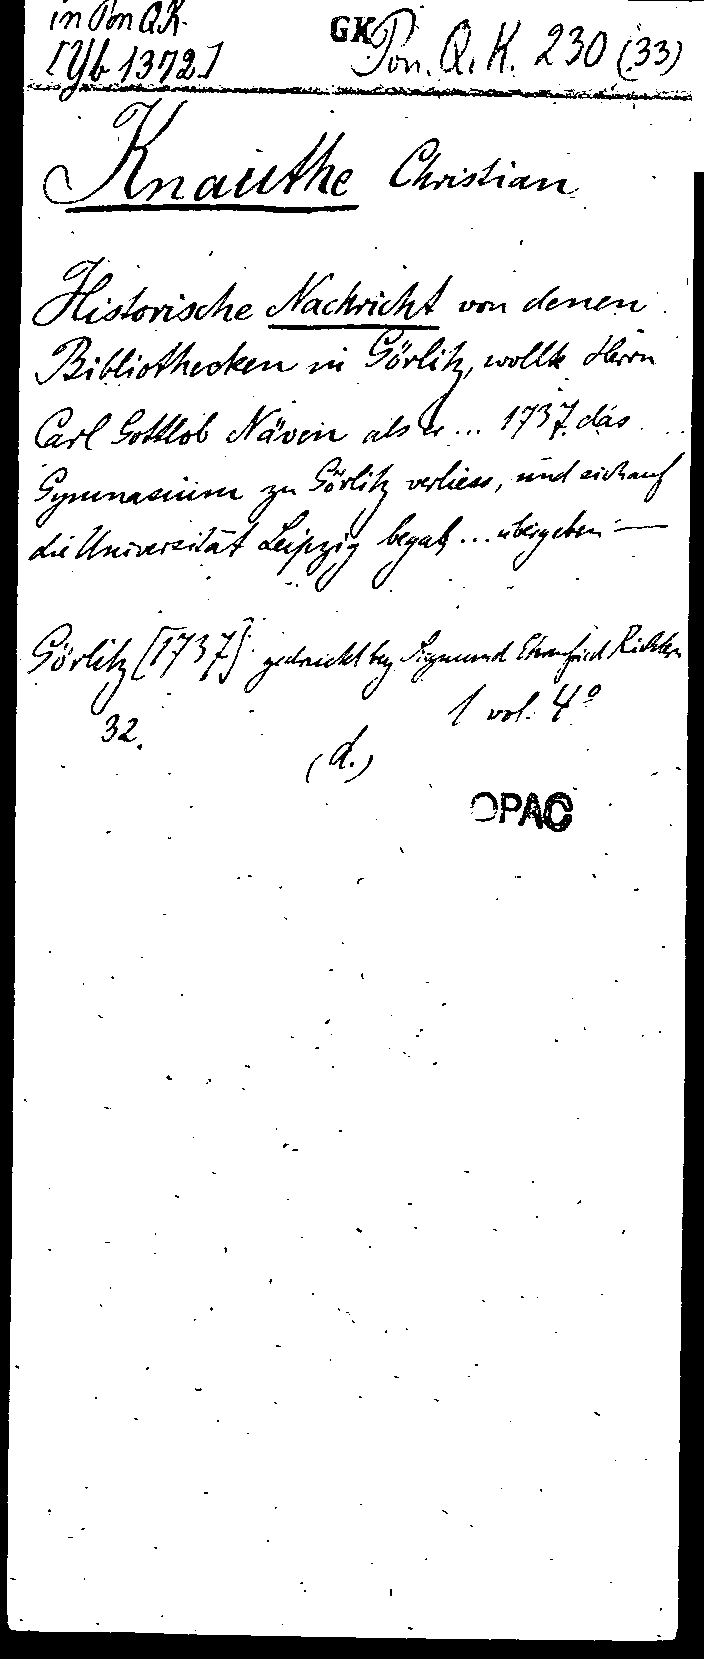 in Pon Q.K.
[Yb 1372]
GK Pon. Q. K. 230 (33)
Knauthe Christian
Historische Nachricht von denen
Bibliothecken in Görlitz, wollte Herrn
Carl Gottlob Näven als er ... 1737. das
Gymnasium zu Görlitz verliess, und sich auf
die Universität Leipzig begab ... übergeben —
Görlitz [1737] gedruckt bey Sigmund Ehrenfried Richter
1 vol. 4°
32.
(d.)
OPAC